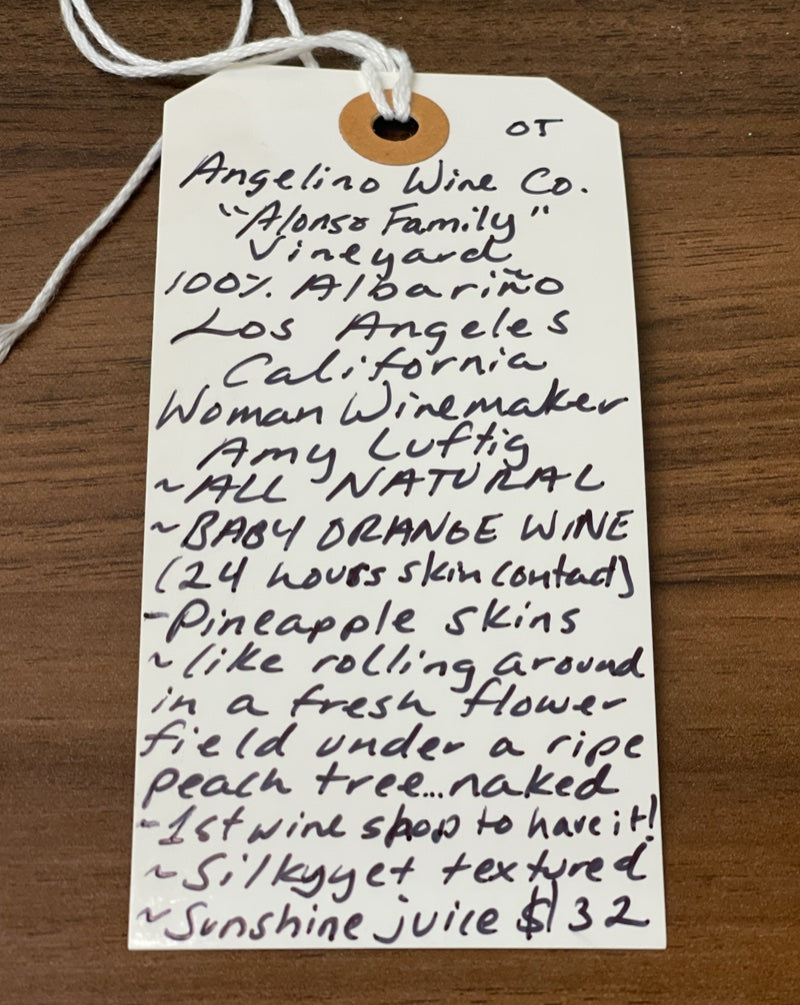 OT
Angelino Wine Co.
"Alonso Family"
Vineyard
100% Albariño
Los Angeles
California
Woman Winemaker
Amy Luftig
~ALL NATURAL
~BABY ORANGE WINE
(24 hours skin contact)
-Pineapple skins
~like rolling around
in a fresh flower
field under a ripe
peach tree...naked
-1st wine shop to have it!
~Silky yet textured
~Sunshine juice $32